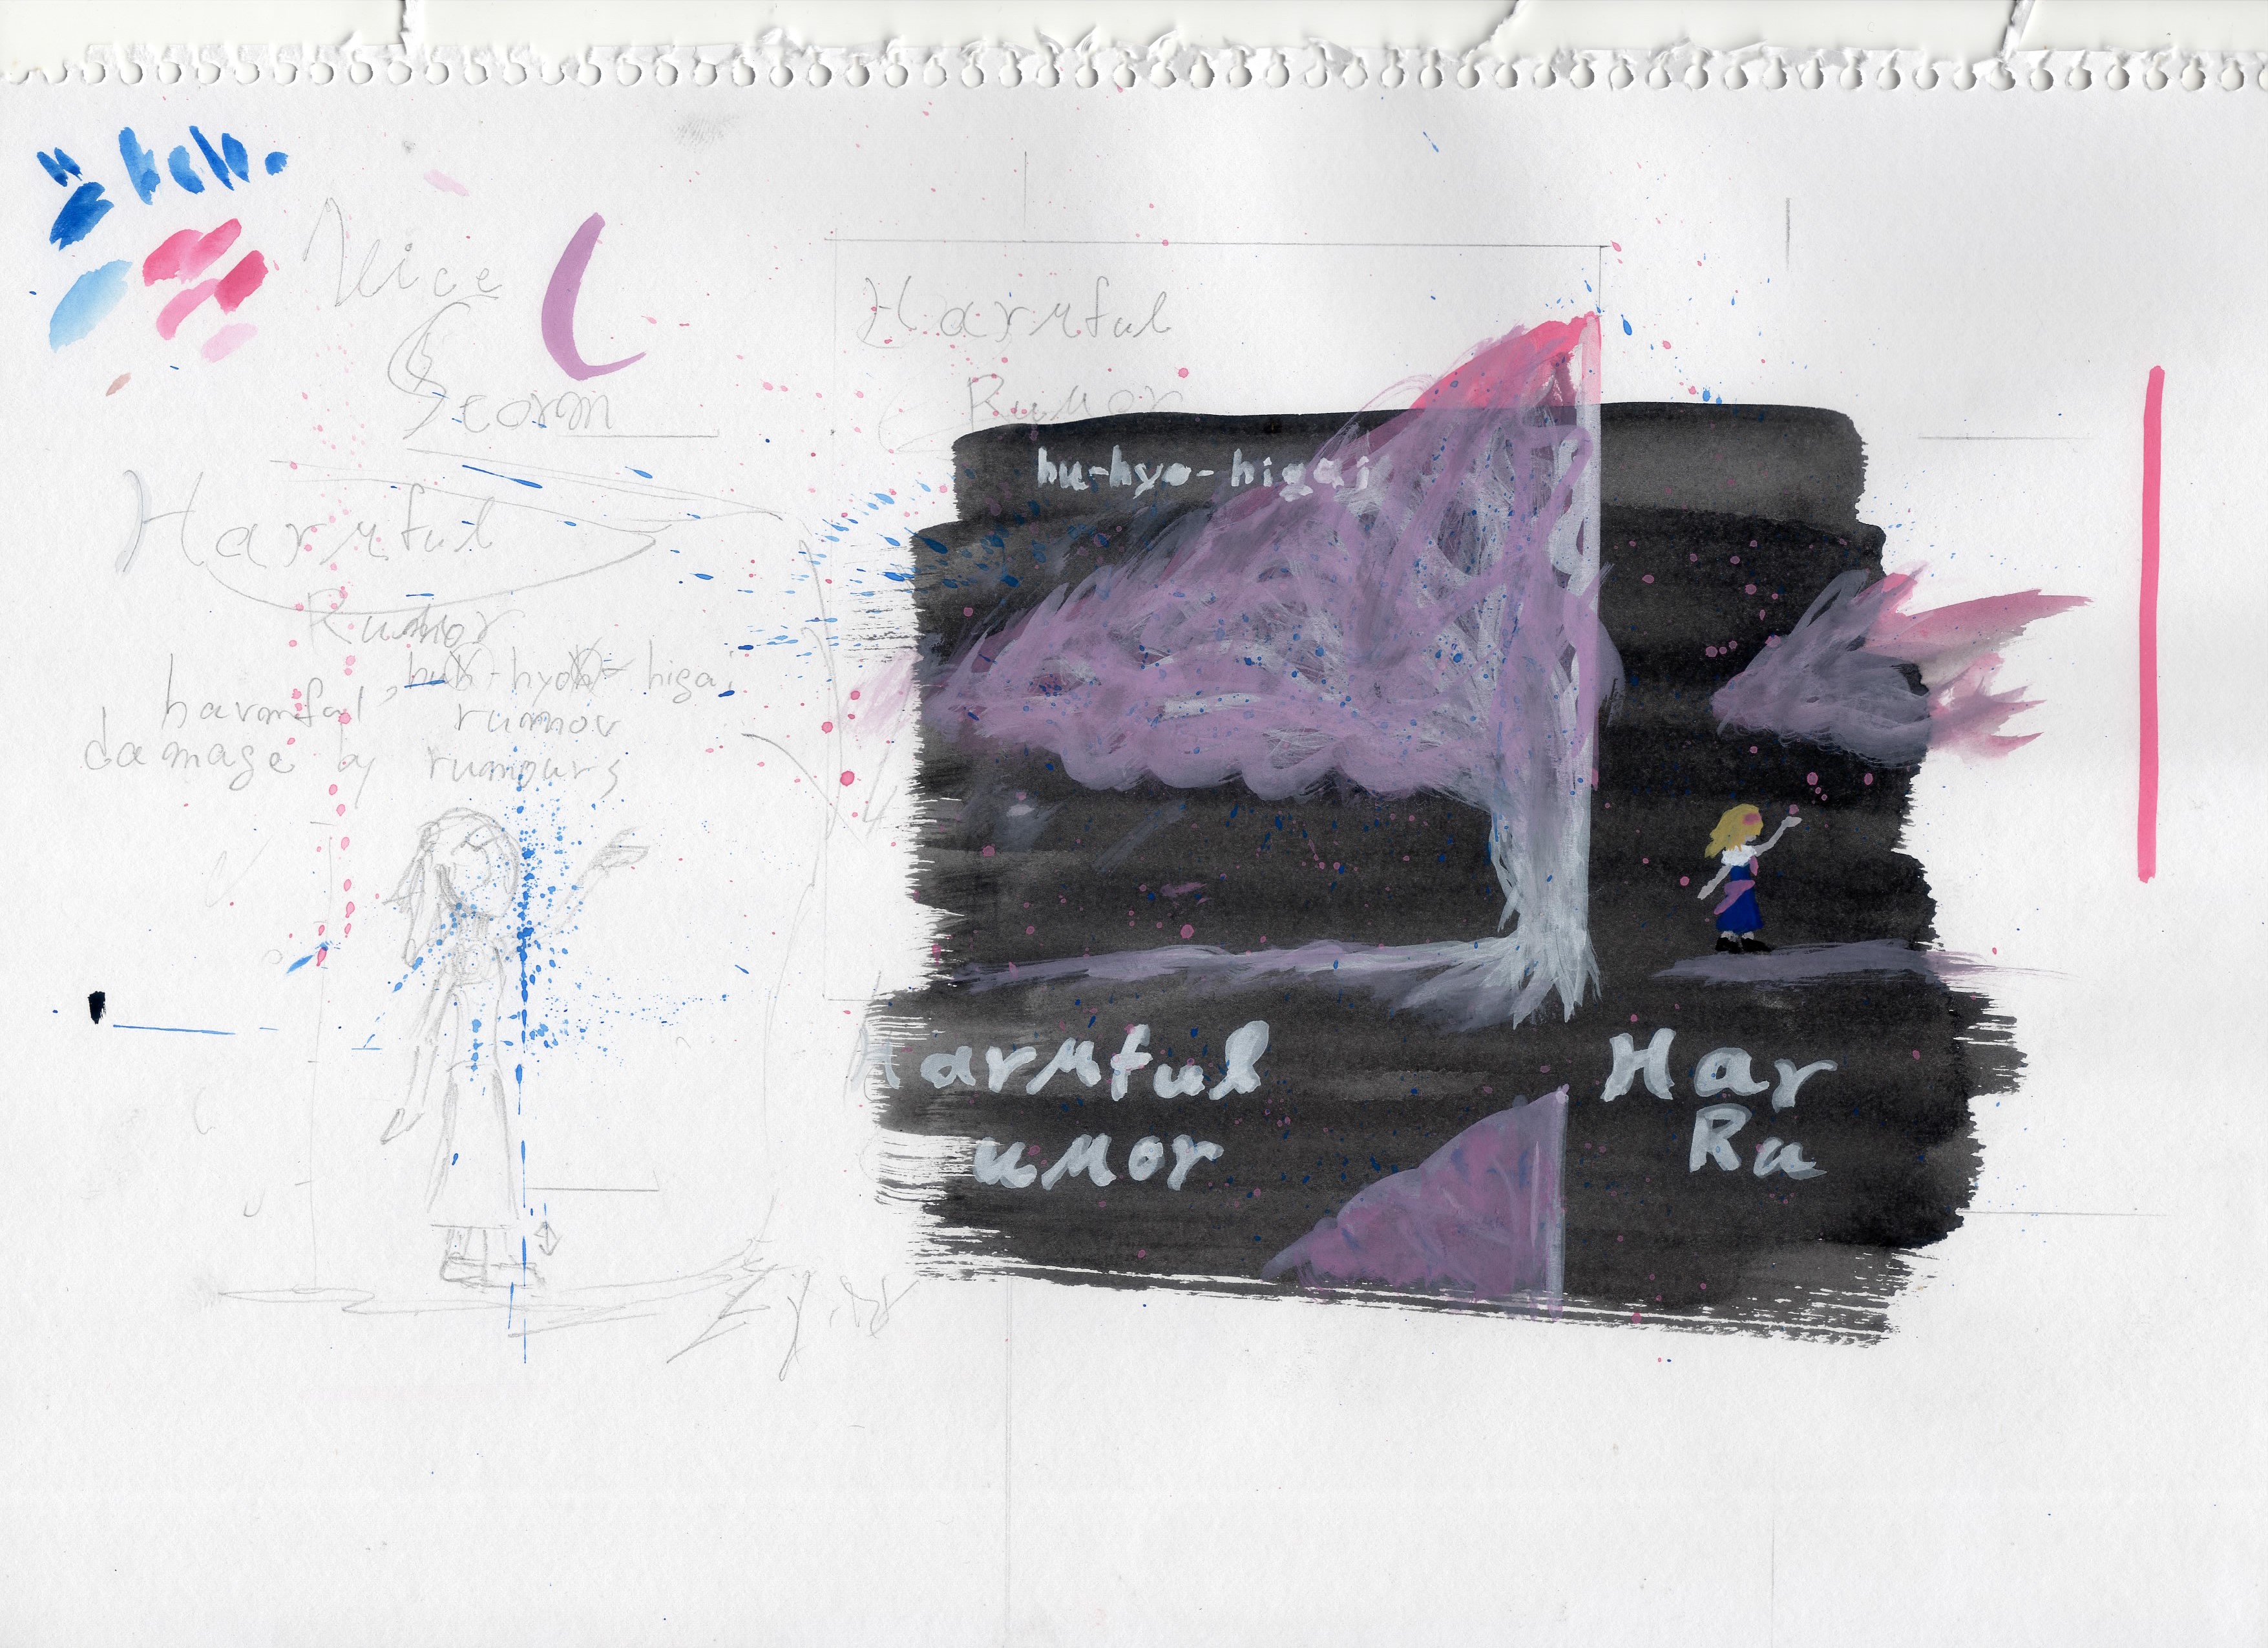 hello
Nice
Storm
Harmful
Rumor
hu-hyo-higai
harmful rumor
damage by rumours
Harmful
Rumor
hu-hyo-higai
Harmful
umor
Har
Ru